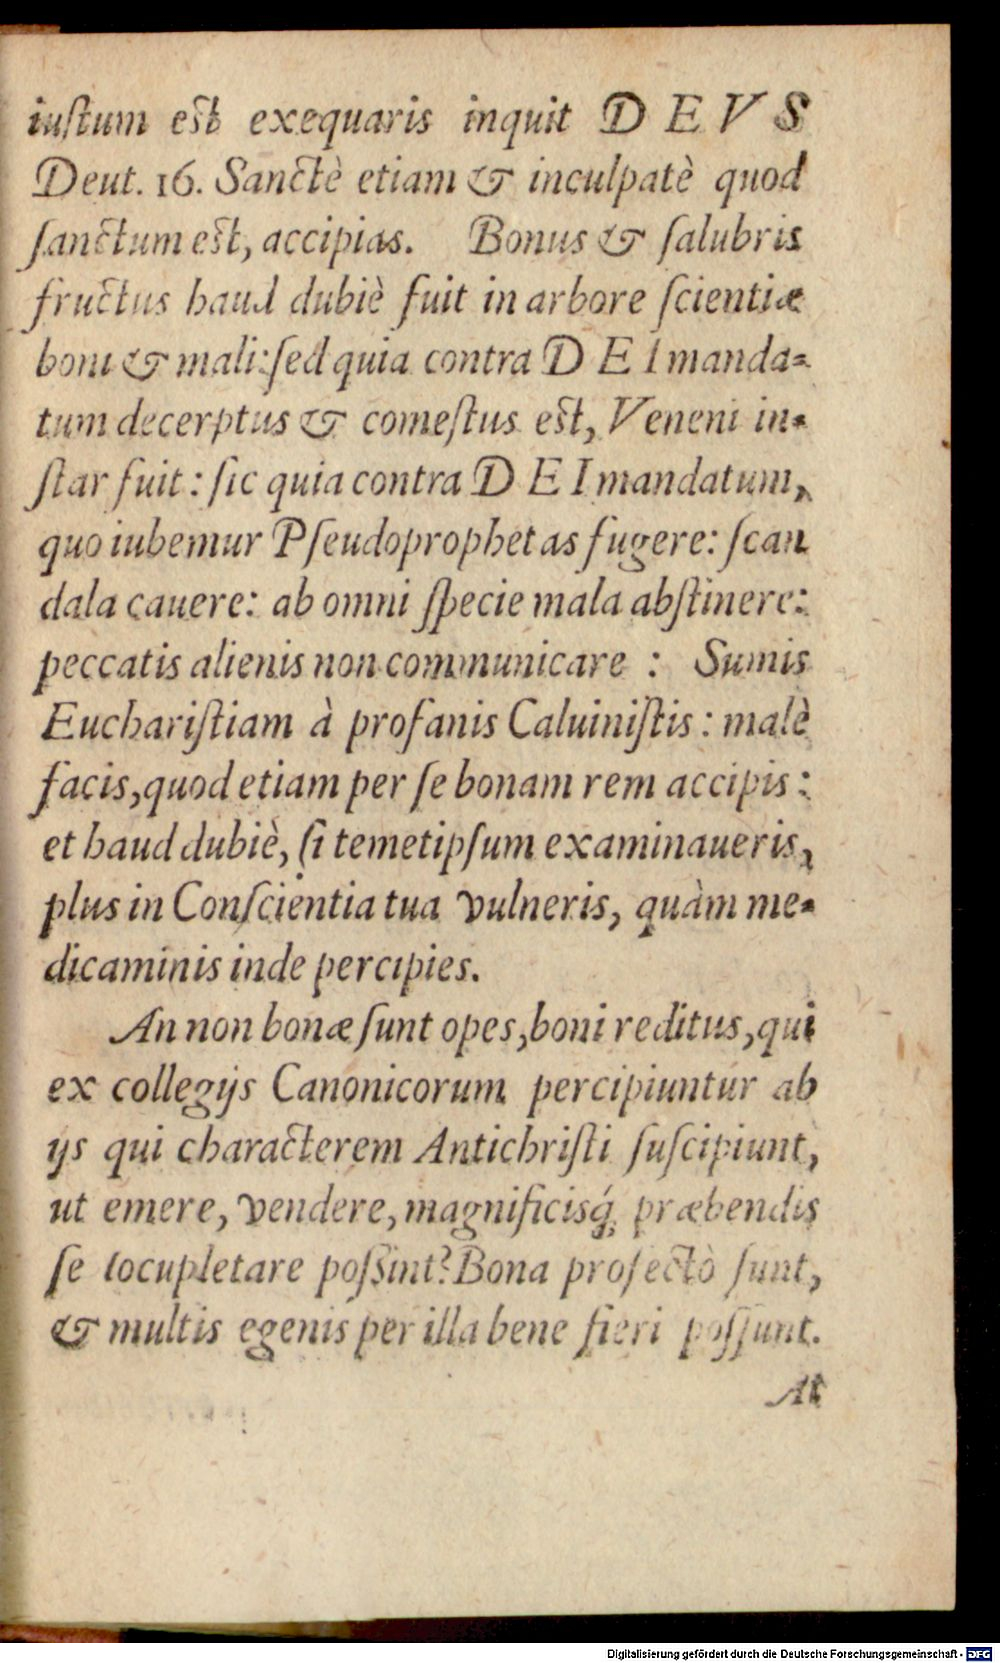 iuſtum est exequaris inquit D E V S
Deut. 16. Sanctè etiam & inculpatè quod
ſanctum est, accipias. Bonus & ſalubris
fructus haud dubiè fuit in arbore ſcientiæ
boni & mali: ſed quia contra D E I manda-
tum decerptus & comeſtus est, Veneni in-
ſtar fuit: ſic quia contra D E I mandatum,
quo iubemur Pſeudoprophetas fugere: ſcan
dala cauere: ab omni ſpecie mala abſtinere:
peccatis alienis non communicare : Sumis
Euchariſtiam à profanis Caluiniſtis: malè
facis, quod etiam per ſe bonam rem accipis:
et haud dubiè, ſi temetipſum examinaueris,
plus in Conſcientia tua vulneris, quàm me-
dicaminis inde percipies.
An non bonæ ſunt opes, boni reditus, qui
ex collegijs Canonicorum percipiuntur ab
ijs qui characterem Antichriſti ſuſcipiunt,
ut emere, vendere, magnificisq́; præbendis
ſe locupletare poßint? Bona profectò ſunt,
& multis egenis per illa bene fieri poſſunt.
At
Digitalisierung gefördert durch die Deutsche Forschungsgemeinschaft - DFG